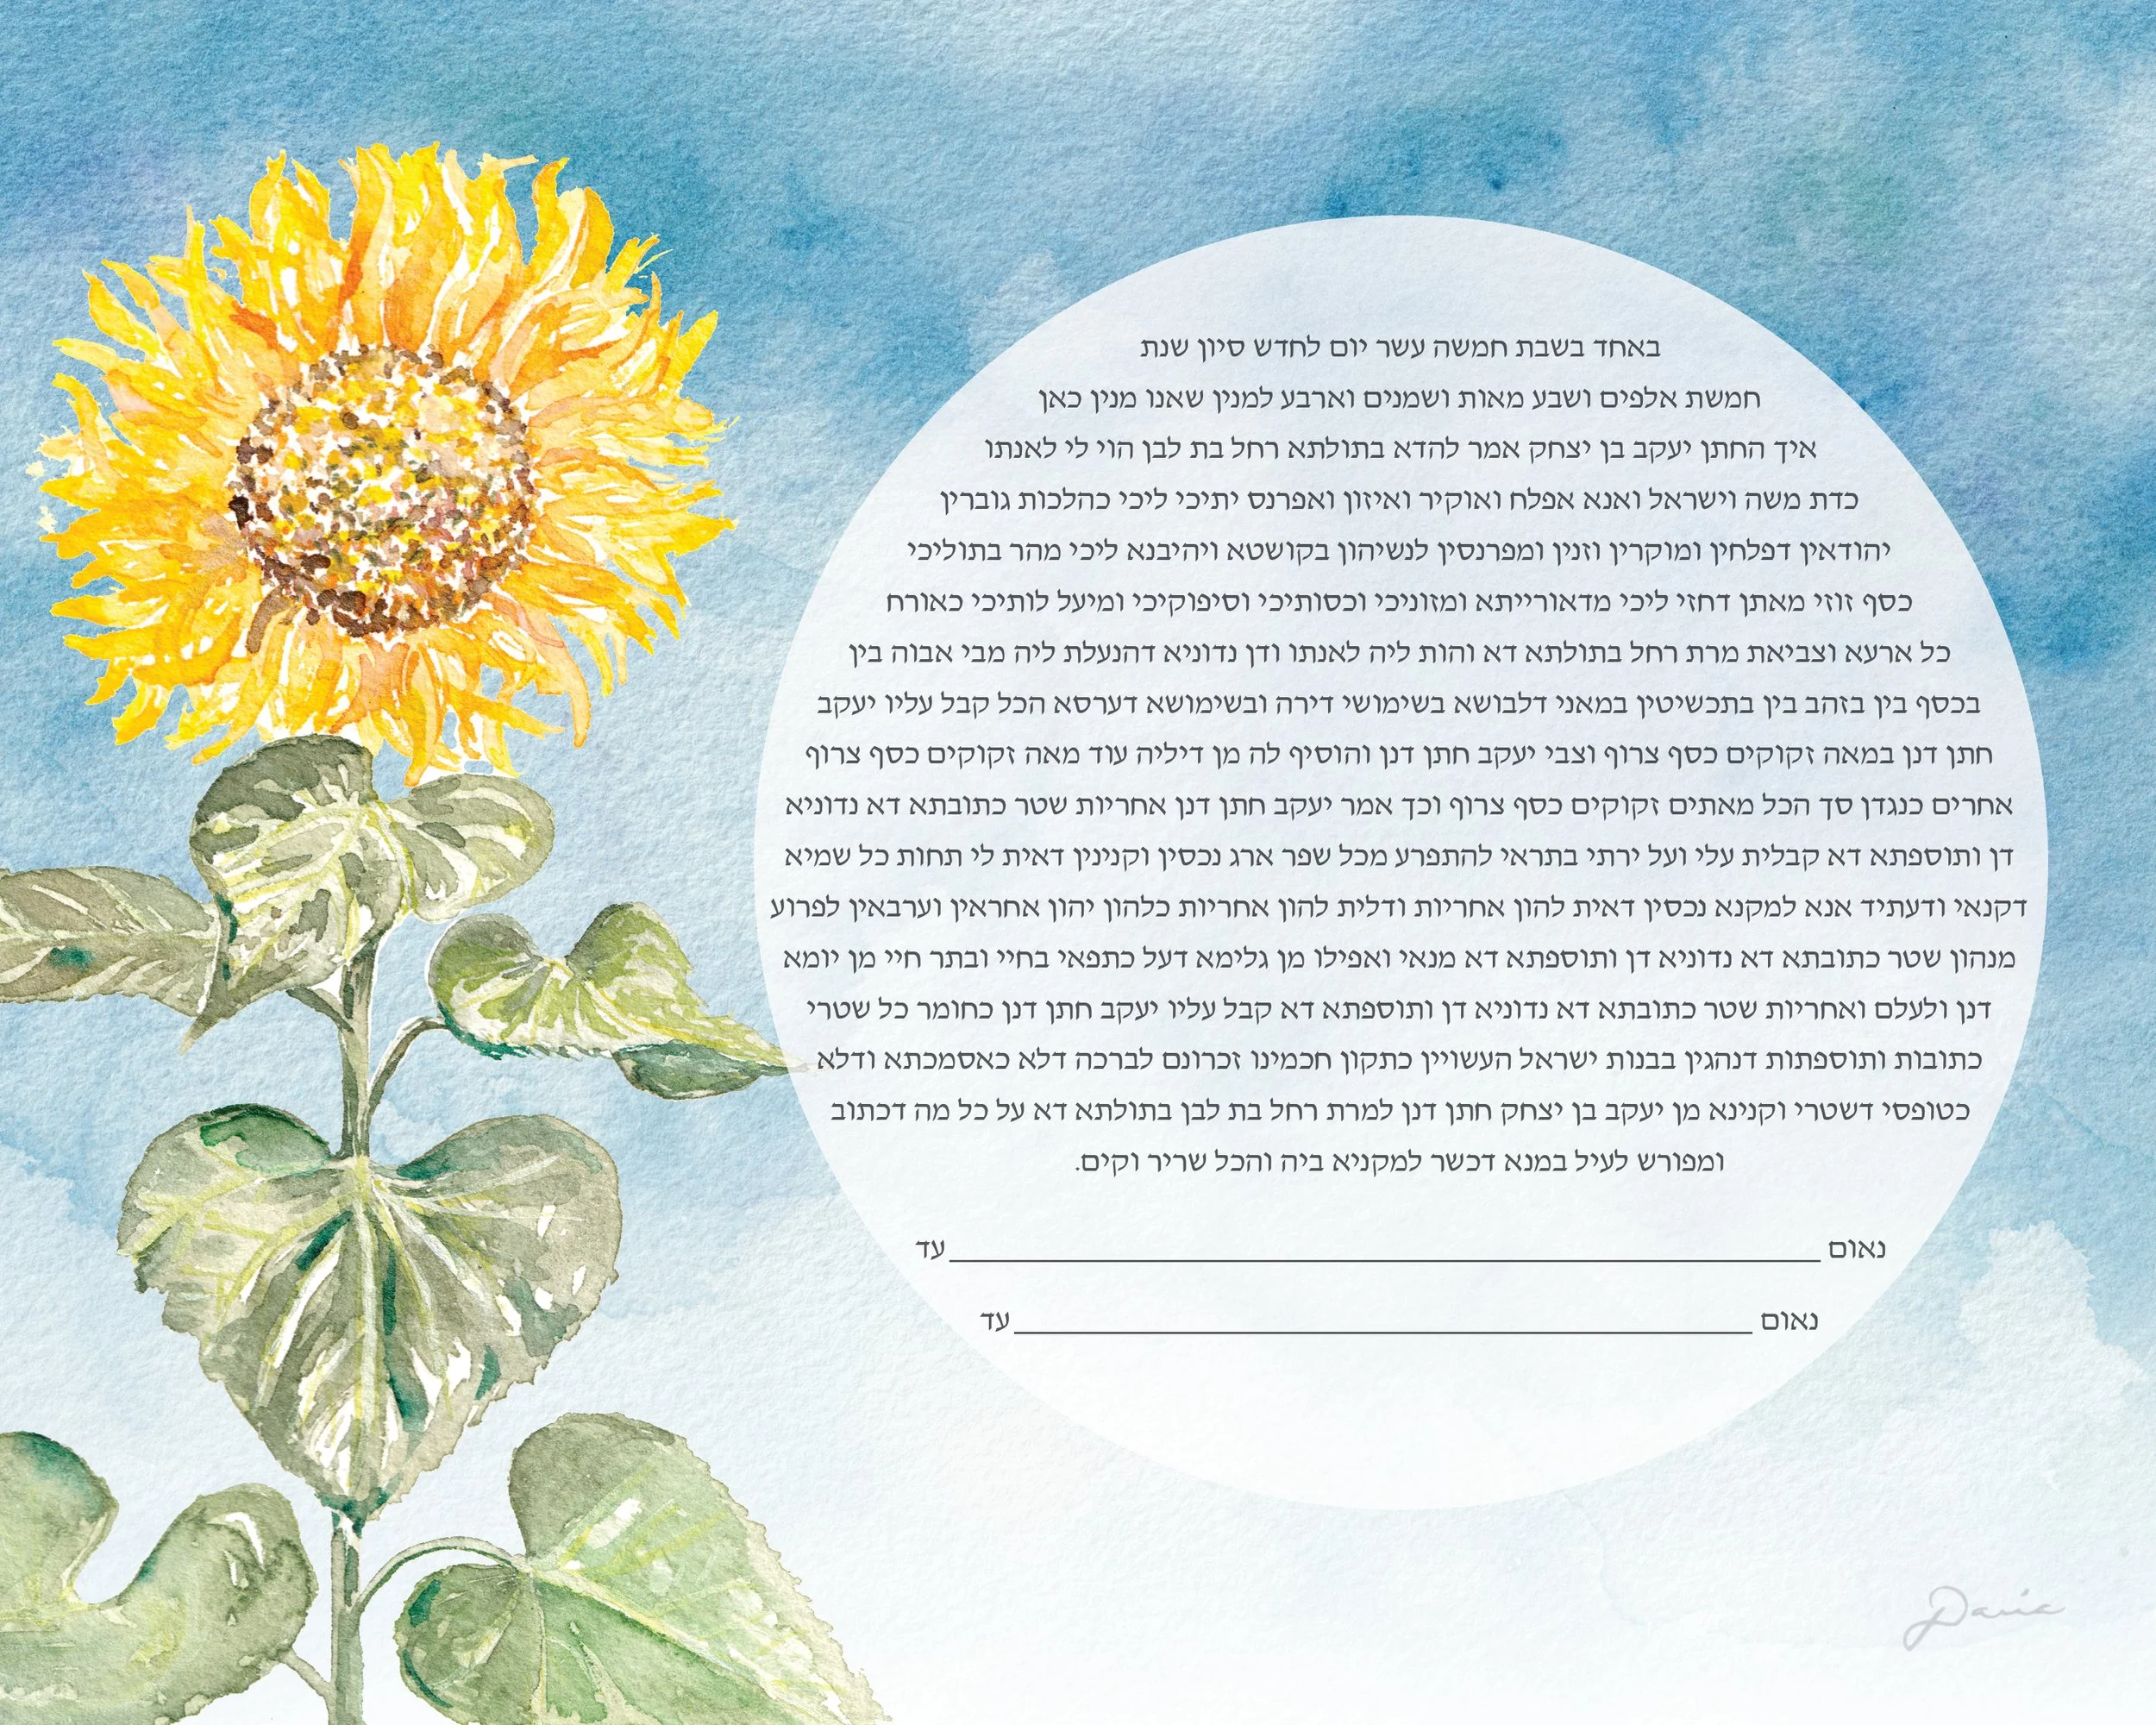 באחד בשבת חמשה עשר יום לחדש סיון שנת
חמשת אלפים ושבע מאות ושמנים וארבע למנין שאנו מנין כאן
איך החתן יעקב בן יצחק אמר להדא בתולתא רחל בת לבן הוי לי לאנתו
כדת משה וישראל ואנא אפלח ואוקיר ואיזון ואפרנס יתיכי ליכי כהלכות גוברין
יהודאין דפלחין ומוקרין וזנין ומפרנסין לנשיהון בקושטא ויהיבנא ליכי מהר בתוליכי
כסף זוזי מאתן דחזי ליכי מדאורייתא ומזוניכי וכסותיכי וסיפוקיכי ומיעל לותיכי כאורח
כל ארעא וצביאת מרת רחל בתולתא דא והות ליה לאנתו ודן נדוניא דהנעלת ליה מבי אבוה בין
בכסף בין בזהב בין בתכשיטין במאני דלבושא בשימושי דירה ובשימושא דערסא הכל קבל עליו יעקב
חתן דנן במאה זקוקים כסף צרוף וצבי יעקב חתן דנן והוסיף לה מן דיליה עוד מאה זקוקים כסף צרוף
אחרים כנגדן סך הכל מאתים זקוקים כסף צרוף וכך אמר יעקב חתן דנן אחריות שטר כתובתא דא נדוניא
דן ותוספתא דא קבלית עלי ועל ירתי בתראי להתפרע מכל שפר ארג נכסין וקנינין דאית לי תחות כל שמיא
דקנאי ודעתיד אנא למקנא נכסין דאית להון אחריות ודלית להון אחריות כלהון יהון אחראין וערבאין לפרוע
מנהון שטר כתובתא דא נדוניא דן ותוספתא דא מנאי ואפילו מן גלימא דעל כתפאי בחיי ובתר חיי מן יומא
דנן ולעלם ואחריות שטר כתובתא דא נדוניא דן ותוספתא דא קבל עליו יעקב חתן דנן כחומר כל שטרי
כתובות ותוספתות דנהגין בבנות ישראל העשויין כתקון חכמינו זכרונם לברכה דלא כאסמכתא ודלא
כטופסי דשטרי וקנינא מן יעקב בן יצחק חתן דנן למרת רחל בת לבן בתולתא דא על כל מה דכתוב
ומפורש לעיל במנא דכשר למקניא ביה והכל שריר וקים.
נאום עד
נאום עד